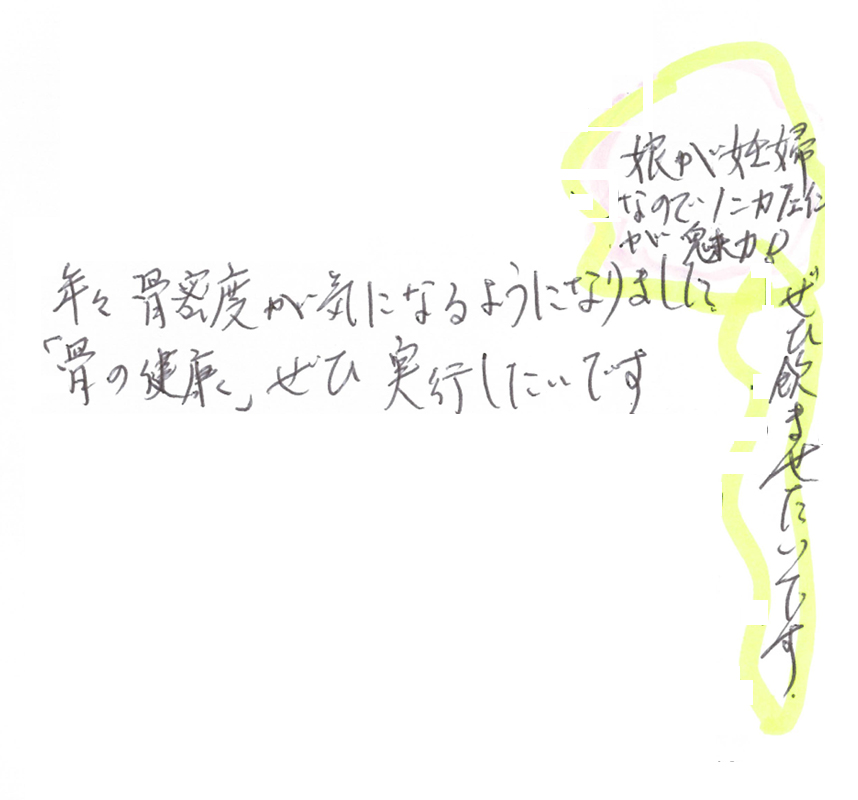 年々骨密度が気になるようになりました
「骨の健康」ぜひ実行したいです
娘が妊婦
なのでノンカフェイン
が魅力!
ぜひ飲ませたいです。